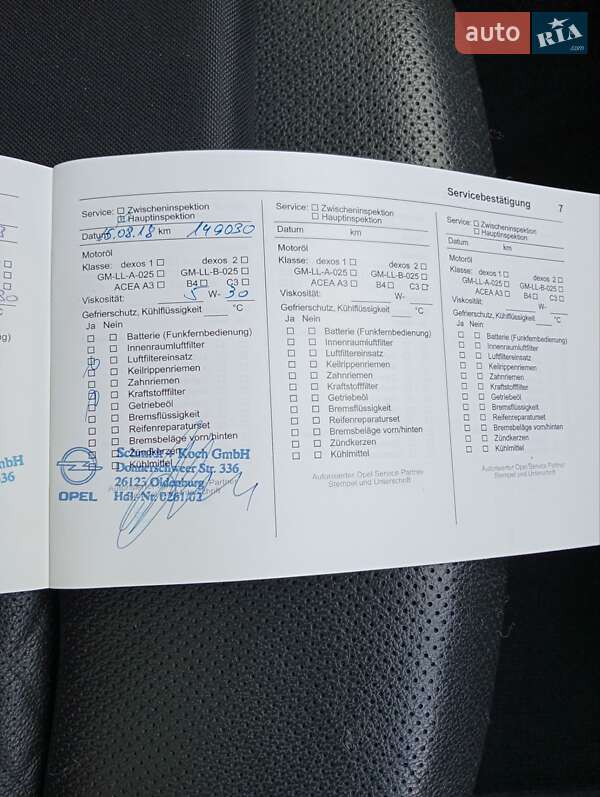 auto RIA .com
Servicebestätigung 7
Service: Zwischeninspektion
Hauptinspektion
Datum 15.08.18 km 149030
Motoröl
Klasse: dexos 1 dexos 2
GM-LL-A-025 GM-LL-B-025
ACEA A3 B4 C3
Viskosität: 5 W- 30
Gefrierschutz, Kühlflüssigkeit °C
Ja Nein
Batterie (Funkfernbedienung)
Innenraumluftfilter
Luftfiltereinsatz
Keilrippenriemen
Zahnriemen
Kraftstofffilter
Getriebeöl
Bremsflüssigkeit
Reifenreparaturset
Bremsbeläge vorn/hinten
Zündkerzen
Kühlmittel
Schmidt + Koch GmbH
Donnerschweer Str. 336
26123 Oldenburg
Hdl. Nr. 0261/02
OPEL
Service: Zwischeninspektion
Hauptinspektion
Datum km
Motoröl
Klasse: dexos 1 dexos 2
GM-LL-A-025 GM-LL-B-025
ACEA A3 B4 C3
Viskosität: W-
Gefrierschutz, Kühlflüssigkeit °C
Ja Nein
Batterie (Funkfernbedienung)
Innenraumluftfilter
Luftfiltereinsatz
Keilrippenriemen
Zahnriemen
Kraftstofffilter
Getriebeöl
Bremsflüssigkeit
Reifenreparaturset
Bremsbeläge vorn/hinten
Zündkerzen
Kühlmittel
Autorisierter Opel Service Partner
Stempel und Unterschrift
Service: Zwischeninspektion
Hauptinspektion
Datum km
Motoröl
Klasse: dexos 1 dexos 2
GM-LL-A-025 GM-LL-B-025
ACEA A3 B4 C3
Viskosität: W-
Gefrierschutz, Kühlflüssigkeit °C
Ja Nein
Batterie (Funkfernbedienung)
Innenraumluftfilter
Luftfiltereinsatz
Keilrippenriemen
Zahnriemen
Kraftstofffilter
Getriebeöl
Bremsflüssigkeit
Reifenreparaturset
Bremsbeläge vorn/hinten
Zündkerzen
Kühlmittel
Autorisierter Opel Service Partner
Stempel und Unterschrift